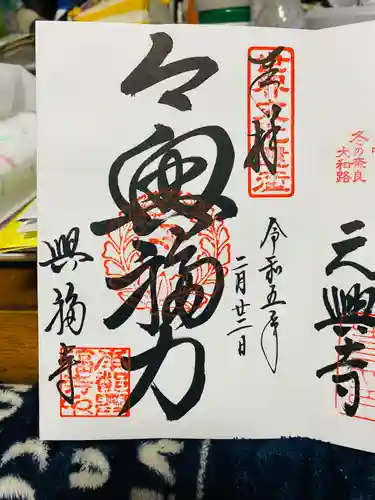 冬の奈良
大和路
元興寺
奉拝
令和五年
二月廿二日
令興福力
興福寺